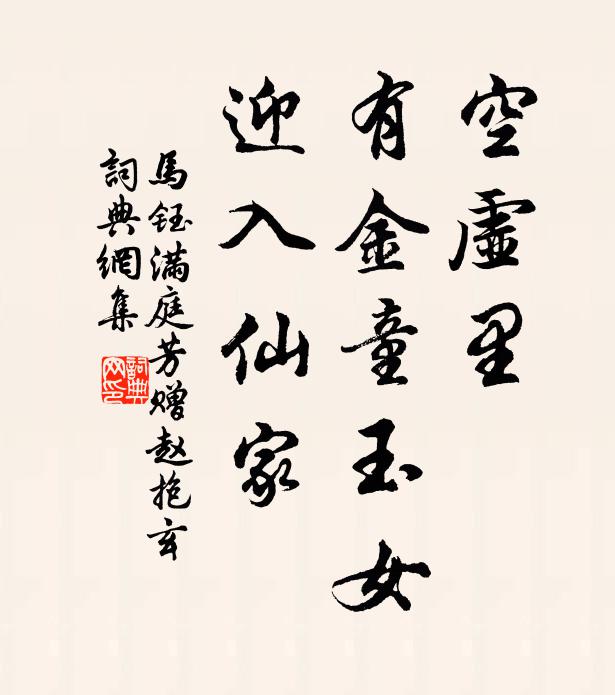 空虛里
有金童玉女
迎入仙家
馬鈺满庭芳赠赵抱玄
詞典網集
詞典网印